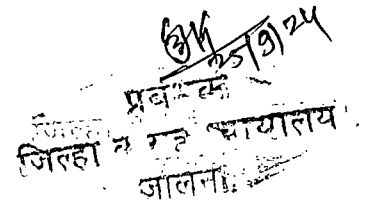 25/9/24
प्रबंधक
जिल्हा व सत्र न्यायालय
जालना.